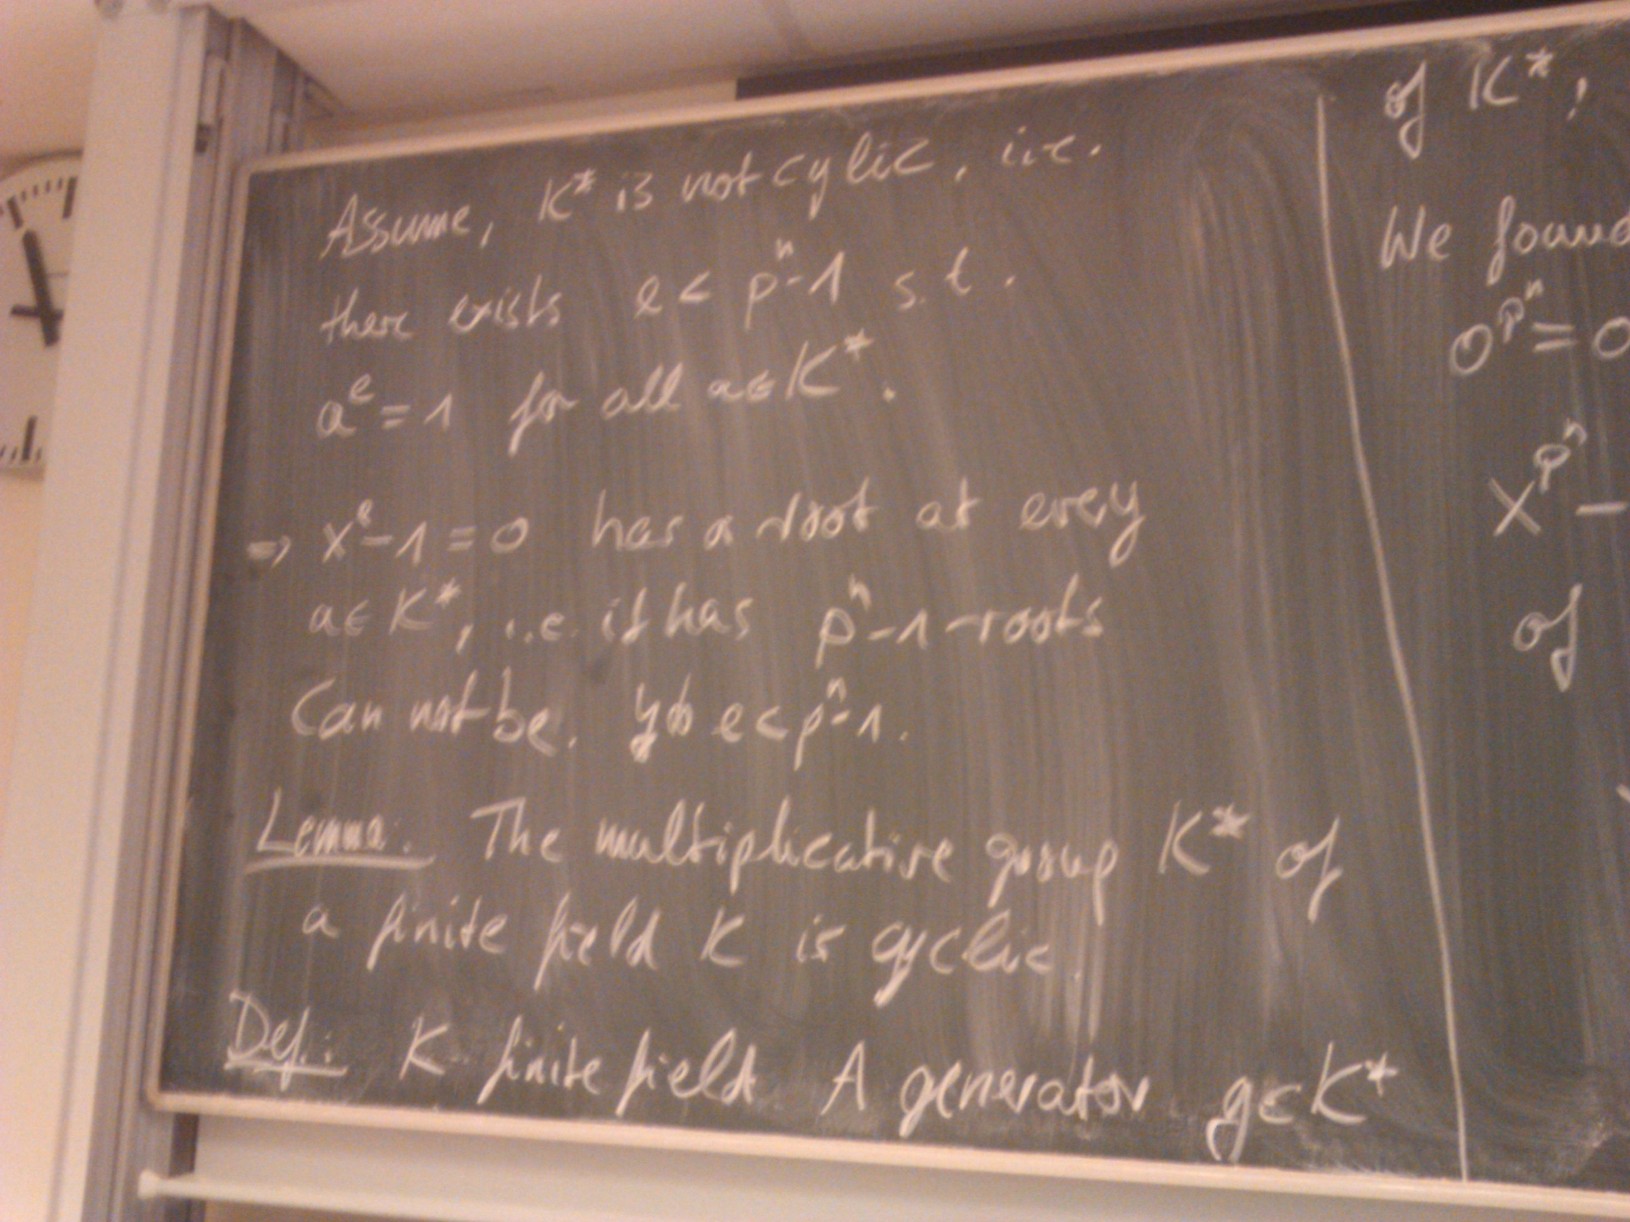 Assume, K* is not cylic, i.e.
there exists e < pⁿ-1 s.t.
aᵉ = 1 for all a∈K*.
⇒ xᵉ-1 = 0 has a root at every
a∈K*, i.e. it has pⁿ-1-roots
Can not be. e<pⁿ-1.
Lemma: The multiplicative group K* of
a finite field K is cyclic.
Def.: K finite field. A generator g∈K*
of K*,
We found
0^pⁿ = 0
X^pⁿ -
of